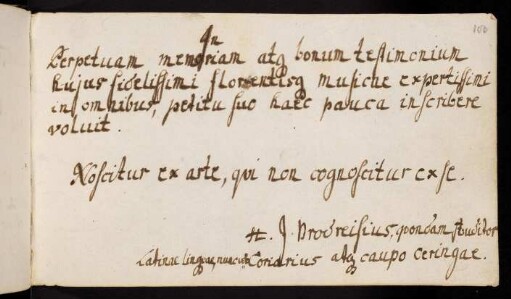 100
In
Perpetuam memoriam atq bonum testimonium
hujus fidelissimi florentisq musicae expertissimi
in omnibus, petitu suo haec pauca inscribere
voluit.
Noscitur ex arte, qui non cognoscitur ex se.
H. J. Brodreisius, quondam studitor
Latinae linguae, nunc Coriarius atq caupo Ceringae.